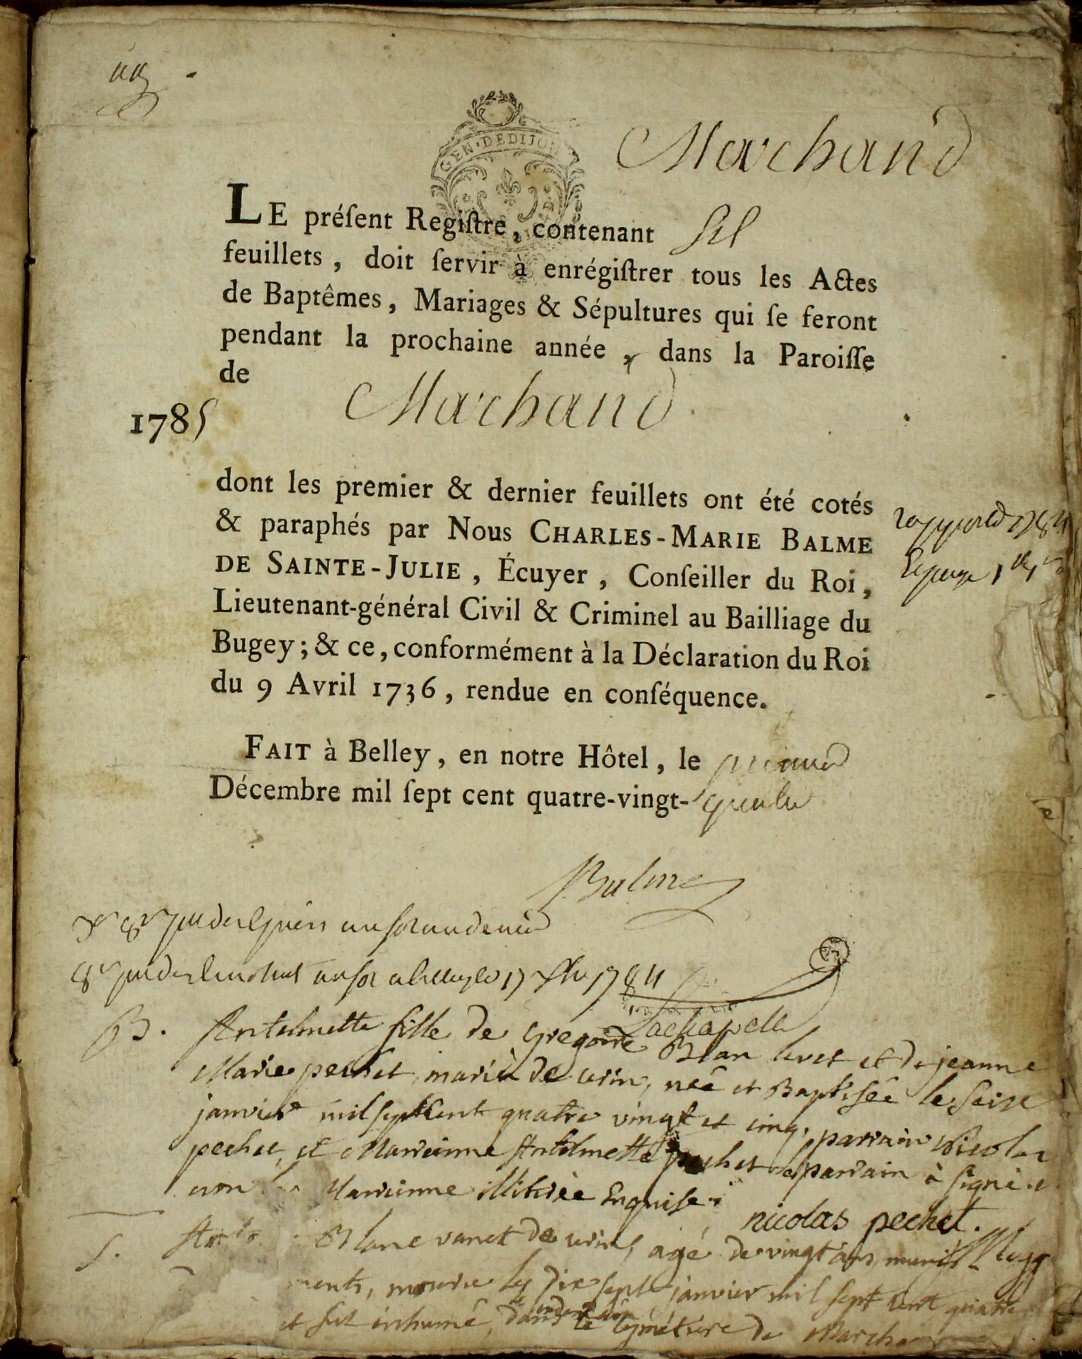 GEN·DEDIJON
Marchand
LE préſent Regiſtre, contenant six
feuillets, doit ſervir à enrégiſtrer tous les Actes
de Baptêmes, Mariages & Sépultures qui ſe feront
pendant la prochaine année, dans la Paroiſſe
de Marchand
1785
dont les premier & dernier feuillets ont été cotés
& paraphés par Nous CHARLES-MARIE BALME
DE SAINTE-JULIE, Écuyer, Conſeiller du Roi,
Lieutenant-général Civil & Criminel au Bailliage du
Bugey; & ce, conformément à la Déclaration du Roi
du 9 Avril 1736, rendue en conſéquence.
FAIT à Belley, en notre Hôtel, le premier
Décembre mil ſept cent quatre-vingt-quatre
Balme
1784
Lachapelle
B. Antelmette fille de Gregoire Blan et de jeanne
Marie pechet, mariés de cerin, née et Baptisée le seize
janvier mil sept cent quatre vingt et cinq. parrain Nicolas
pechet, et Marrainne Antelmette pechet le parrain à signé
non la Marrainne illiterée Enquise
nicolas pechet.
S. Blanc vanet de cerin, agé de vingt ans, muni
ments, mourru les dix sept janvier mil sept cent quatre
et fut inhumé, dans le cymétiere de Marcha